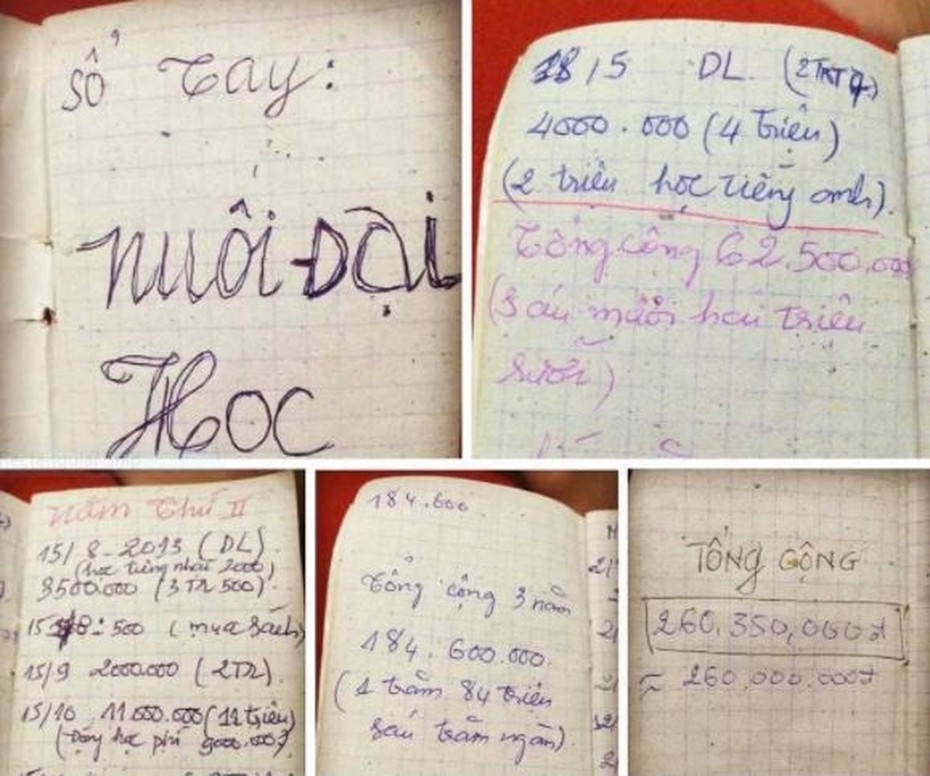 sổ Tay:
NUÔI ĐẠI
HỌC
18/5 DL.
4000.000 (4 triệu)
(2 triệu học tiếng anh).
Tổng cộng 62.500.000
(Sáu mươi hai triệu
Năm Thứ II
15/8-2013 (DL)
(học tiếng nhật 2000)
3500.000 (3TR 500)
500 (mua sách)
15/9 2000.000 (2TR)
15/10 11.000.000 (11 triệu)
(đóng học phí 9000.000)
184.600
Tổng cộng 3 năm
184.600.000.
(1 trăm 84 triệu
sáu trăm ngàn).
TỔNG CỘNG
260.350.000đ
~ 260.000.000đ